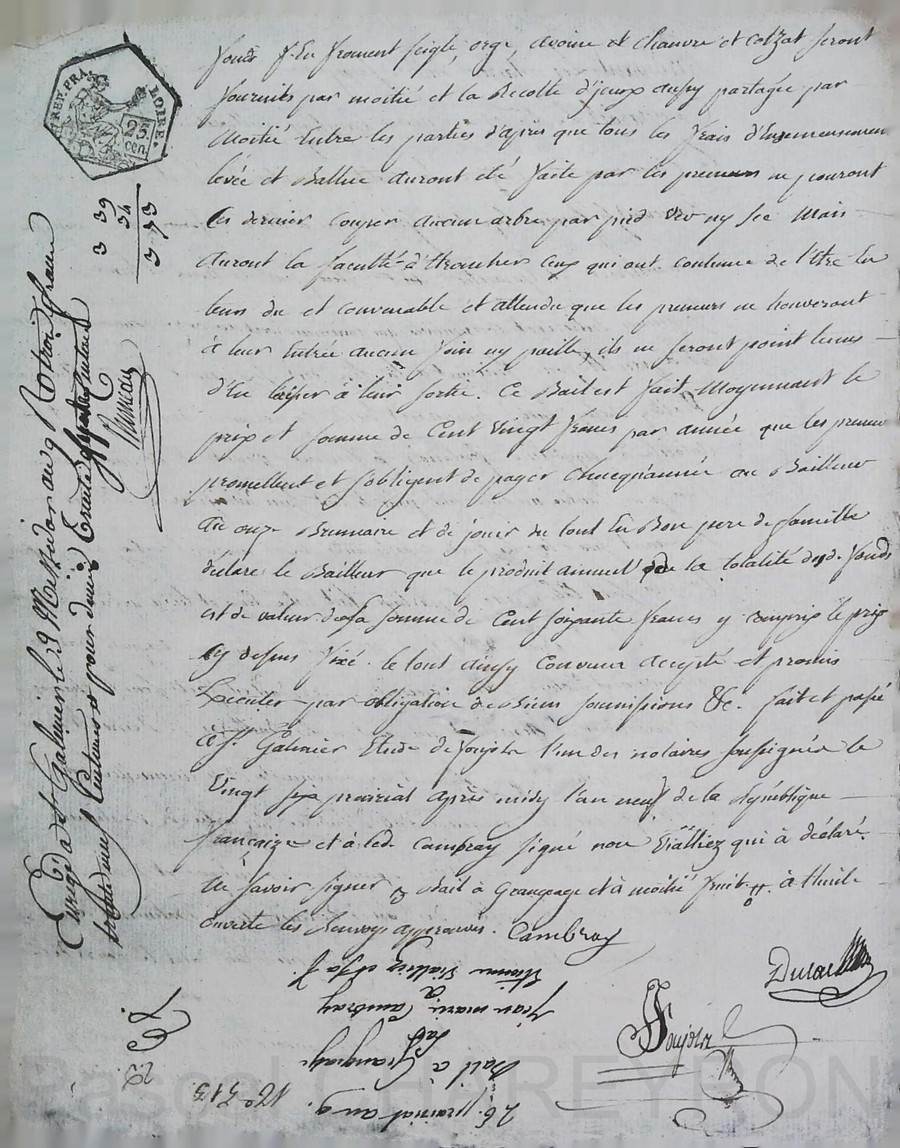 fonds f. En froment seigle, orge, avoine et chanvre et colzat seront
fournits par moitié et la Recolte d'jceux aussy partagée par
Moitié Entre les parties d'après que tous les frais d'Ensemensement
levée et Battue auront été faite par les preneurs ne pouront
Ces dernier Couper aucun arbre par pied Verd ny sec Mais
auront la faculté d'Etroncher Ceux qui ont coutume de l'être En
tems du et convenable et attendu que les preneurs ne trouveront
à leur Entrée aucun foin ny paille, ils ne seront point tenus
d'En laisser à leur sortie. Ce Bail est fait Moyennant le
prix et somme de Cent Vingt francs par année que les preneurs
promettent et s'obligent de payer chacq'année au Bailleur
Au onze Brumaire et de jouir du tout En Bon pere de famille
déclare le Bailleur que le produit annuel de la totalité dud. fonds
est de valeur de la somme de Cent soixante francs y compris le prix
Cy dessus fixé. le tout ainsy Convenu accepté et promis
Executer par obligation de Biens soumissions &c. fait et passé
à St. Galmier Etude de Soujolx l'un des notaires soussignés le
Vingt six prairial après midy l'an neuf de la République
française et à led. Cambray signé non Vialliez qui à déclaré
Ne savoir signer Bail à Grangeage et à moitié fruit à
ouverte les Renvoys approuvés. Cambray
Soujolx
REP. FRA. LOIRE.
25 cen
3 39
34
3 73
Enregé à St Galmier le 29 Messidor an 9 Reçu trois francs
trente neuf Centimes et pour
Etienne Vialliez et sa f.
à
Jean marie Cambray
par
Bail à Grangeage
26 prairial an 9. No 313
Pascal CHAREYRON